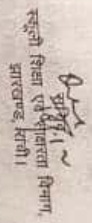 स्कूली शिक्षा एवं साक्षरता विभाग,
झारखण्ड, राँची।